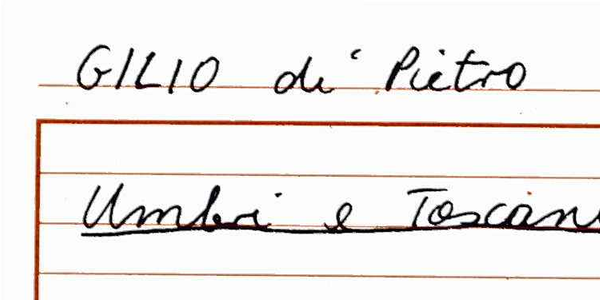 GILIO di Pietro
Umbri e Toscani